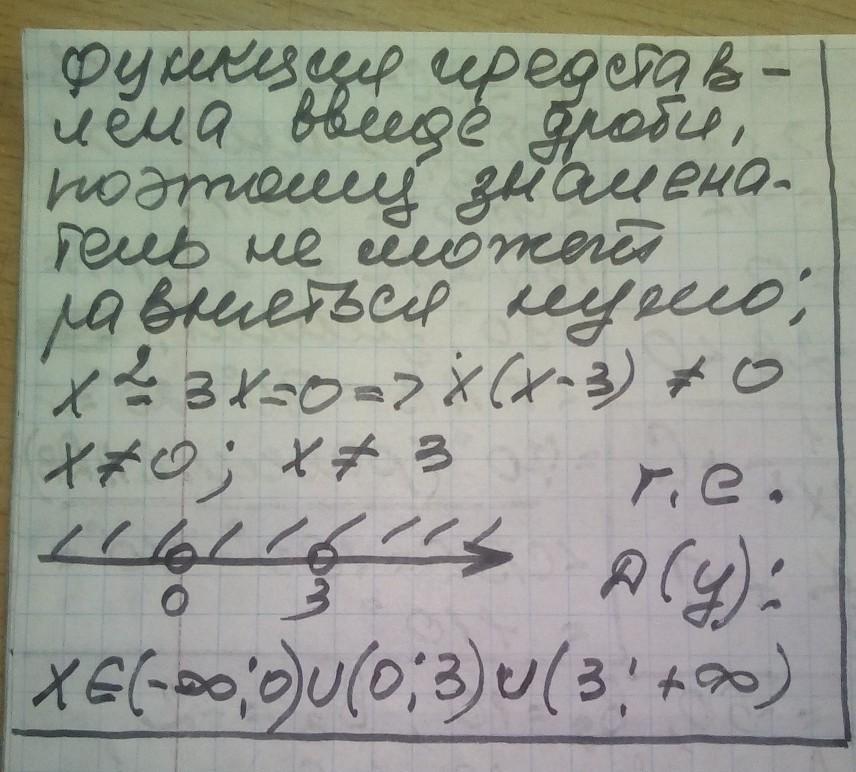 функция представ-
лена ввиде дроби,
поэтому знамена-
тель не может
равняться нулю;
x² - 3x=0=> x(x-3) ≠ 0
x≠0; x≠ 3
т.е.
0 3
D(y):
x∈(-∞;0)∪(0;3)∪(3;+∞)